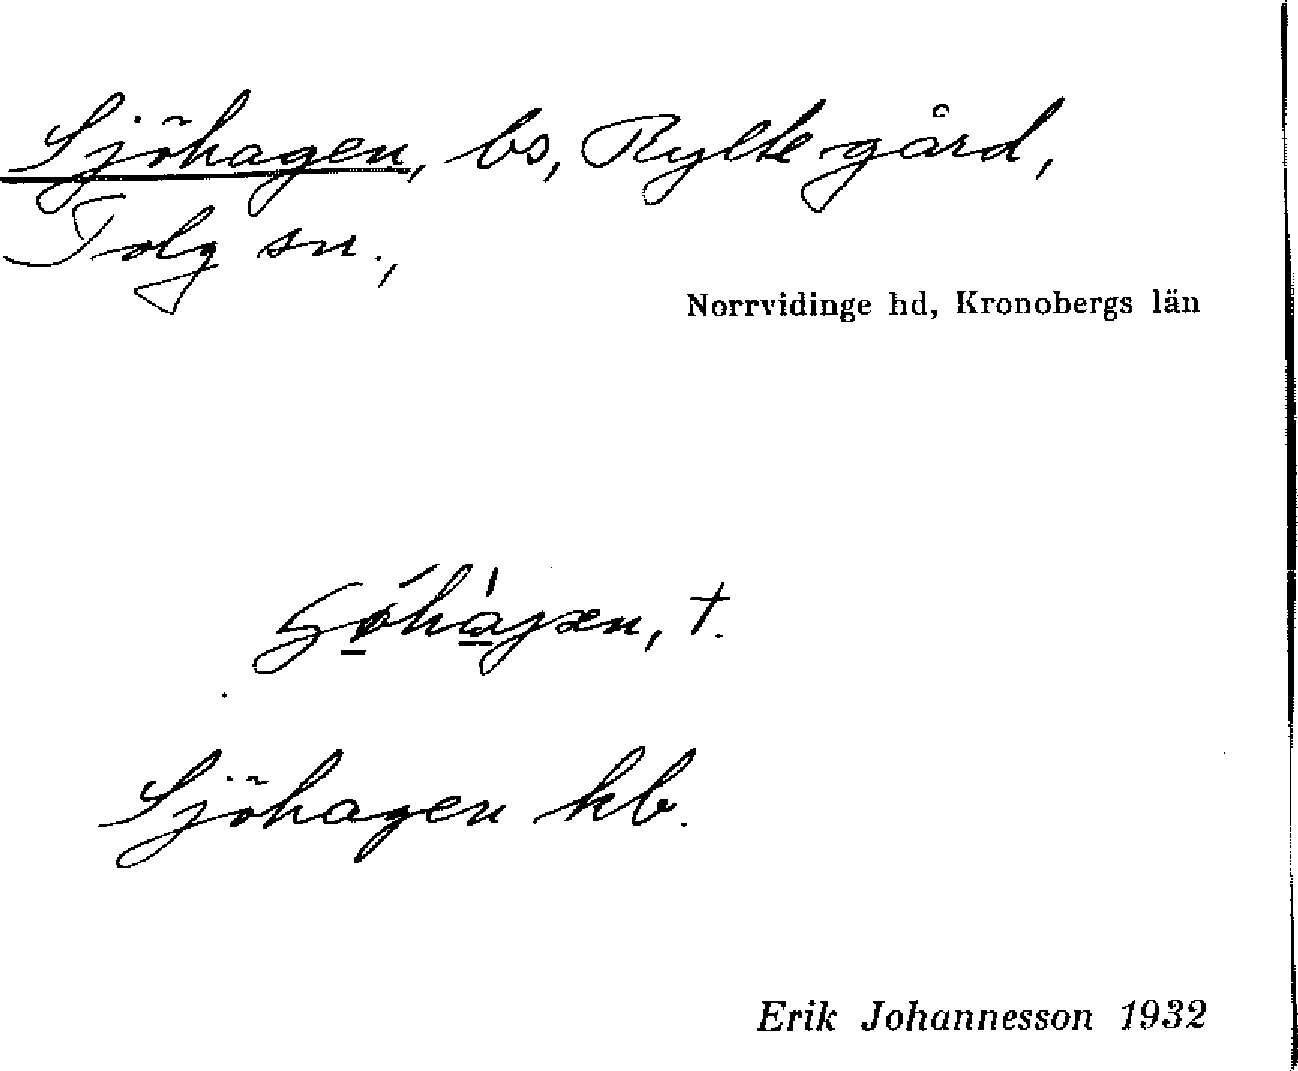 Sjöhagen, bs, Rylke gård,
Tolg sn.,
Norrvidinge hd, Kronobergs län
Sjöhagen kb.
Erik Johannesson 1932